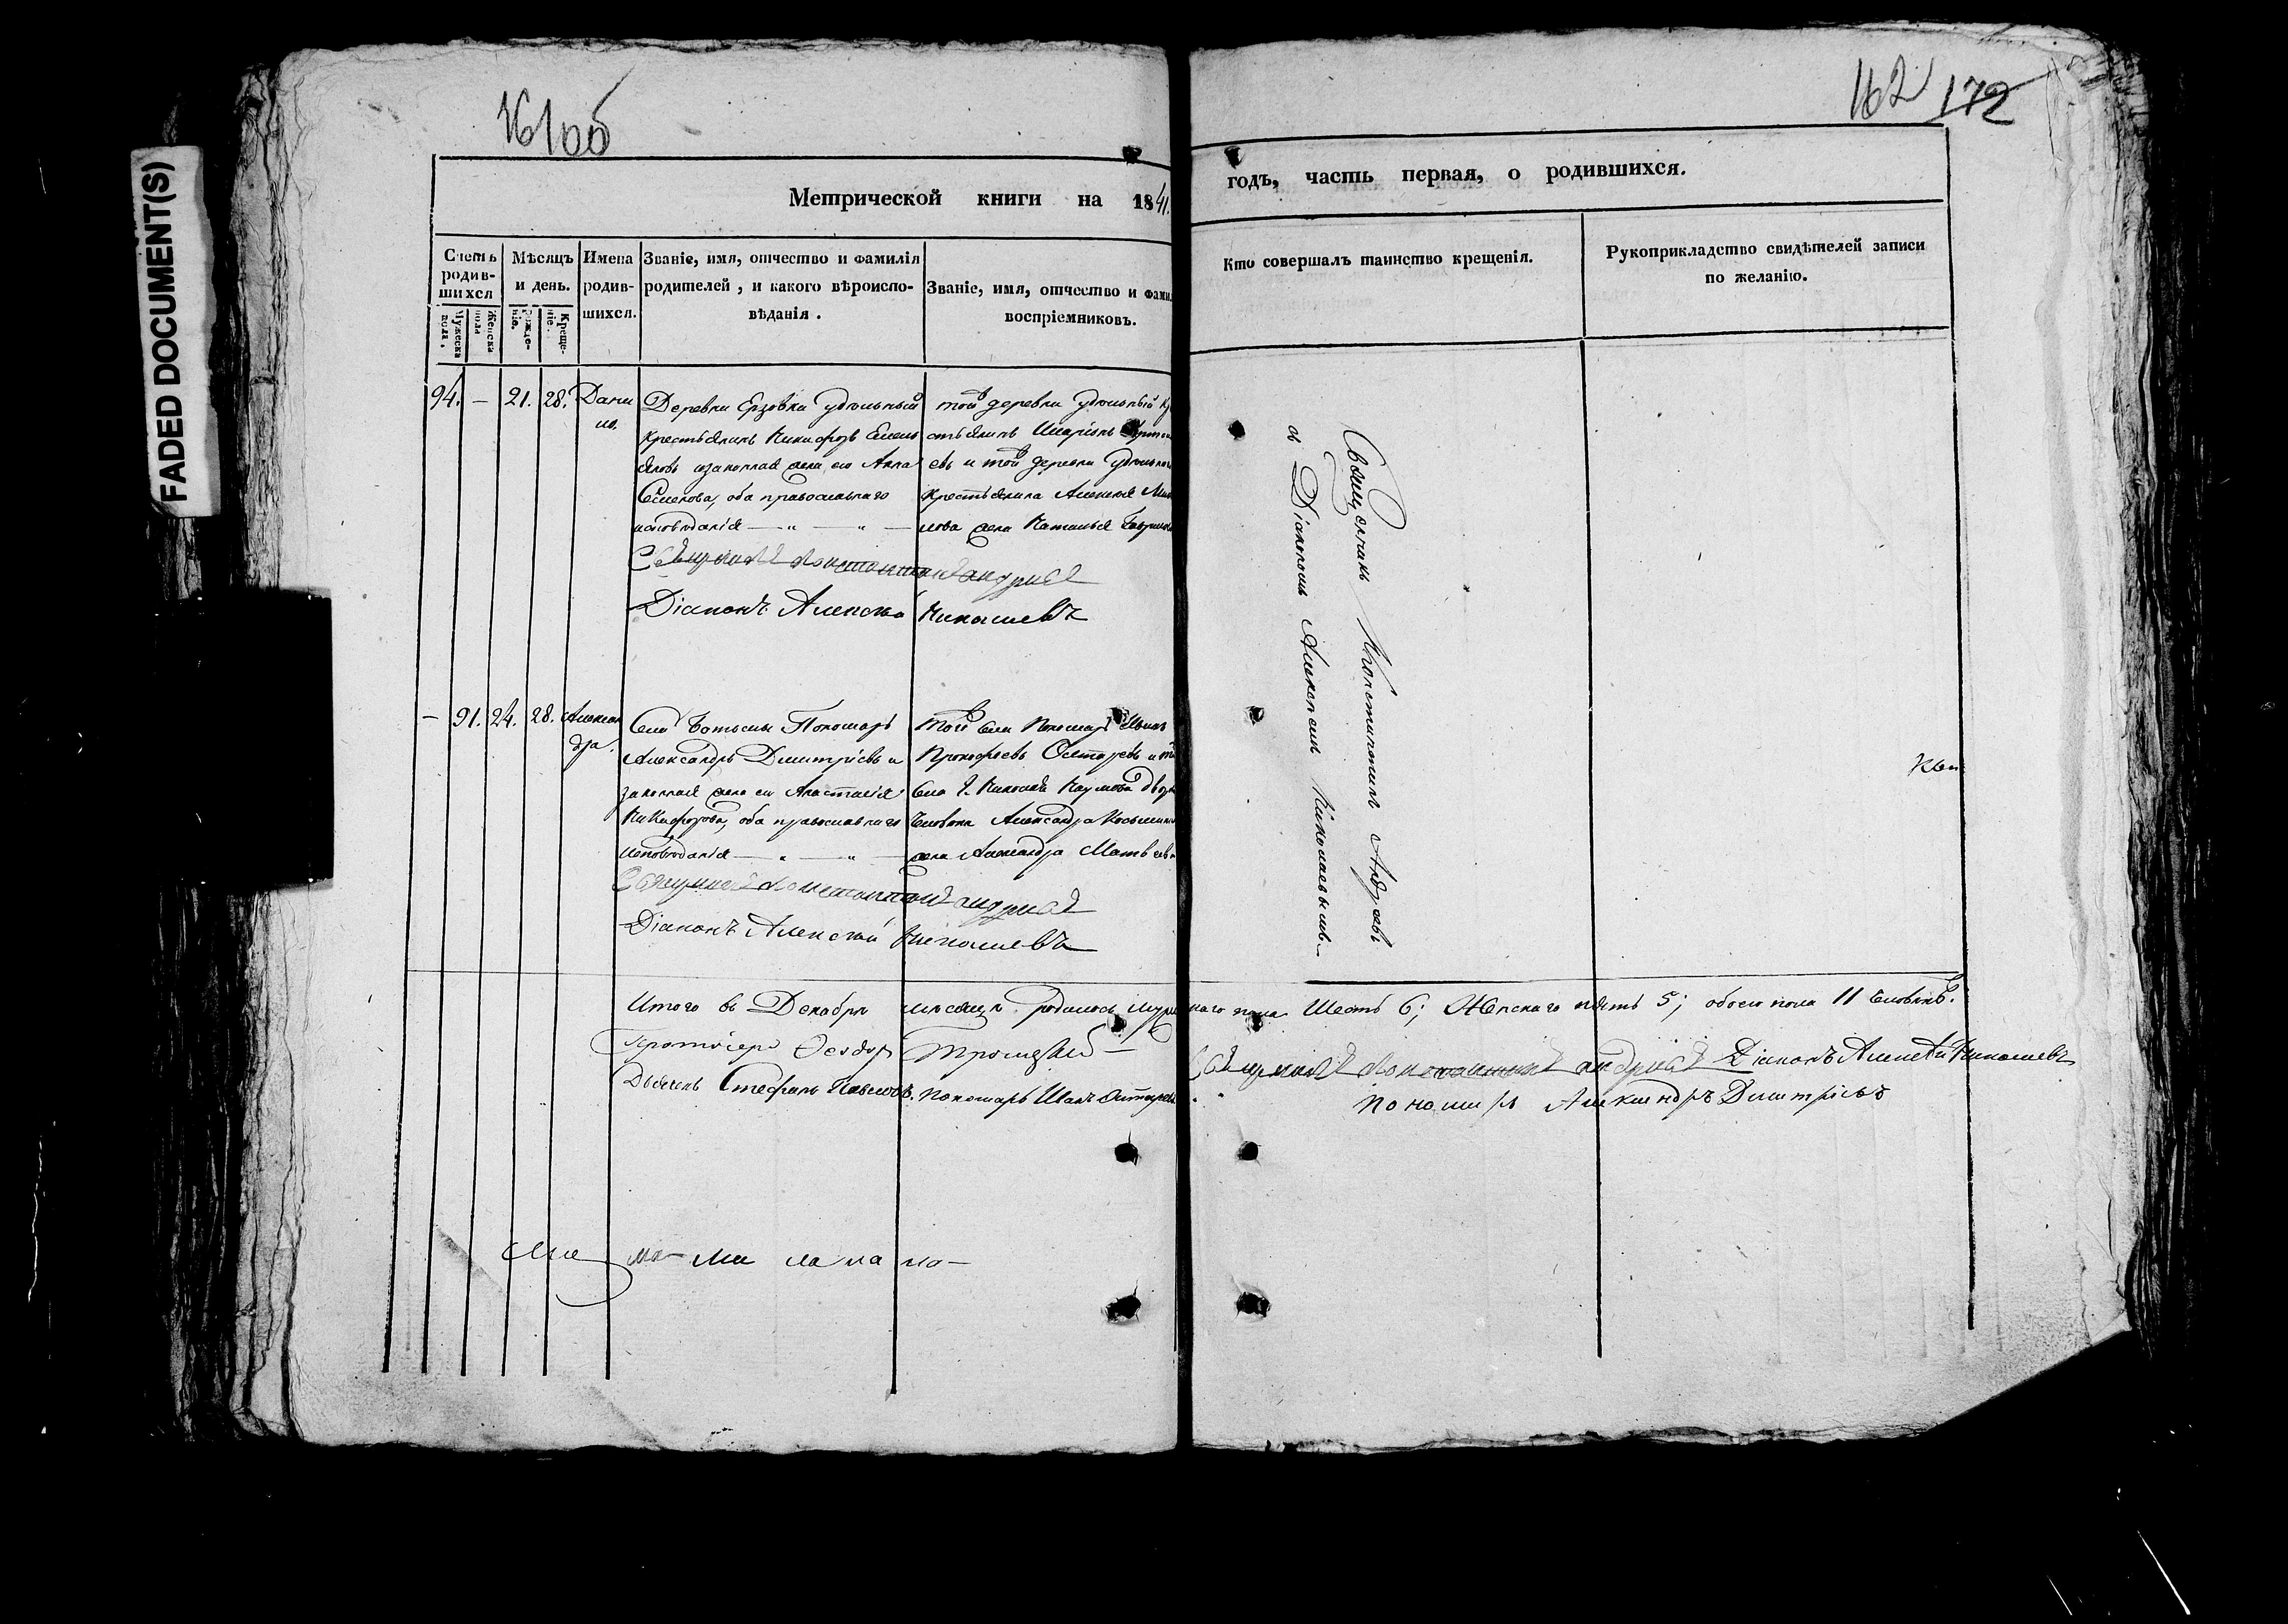 FADED DOCUMENT(S)
161 об
162 172
Метрической книги на 1841.
годъ, часть первая, о родившихся.
Счетъ родившихся
Мужеска пола.
Женска пола
Мѣсяцъ и день.
Рожденіе.
Крещеніе.
Имена родившихся.
Званіе, имя, отчество и фамилія
родителей, и какого вѣроиспо-
вѣданія.
Званіе, имя, отчество и фами
воспріемниковъ.
Кто совершалъ таинство крещенія.
Рукоприкладство свидѣтелей записи
по желанію.
94. — 21. 28. Дани
ил.
Деревни Ерзовки удѣльный
крестьянинъ Никифоръ Емель
яновъ и законная жена его Анна
Семенова, оба православнаго
исповѣданія — „ — „ —
той деревни удѣльный кр
стьянинъ Иларіонъ
евъ и той деревни удѣльнаго
крестьянина Алексѣя
лова жена Наталья Гаврилова
Священникъ Константинъ Андреевъ
Діаконъ Алексѣй Николаевъ
— 91. 24. 28. Алексан
дра.
Села Ботьмы Пономарь
Александръ Димитріевъ и
законная жена его Анастасія
Никифорова, оба православнаго
исповѣданія — „ — „ —
той села Пономарь Иванъ
Прокофьевъ и той
села Г. Николая Наумова двороваго
человѣка Александра Косьмина
жена Александра Матвѣева
Священникъ Константинъ Андреевъ
Діаконъ Алексѣй Николаевъ
Священникъ Константинъ Андреевъ
съ Діакономъ Алексѣемъ Николаевымъ.—
Итого въ Декабрѣ мѣсяцѣ родилось мужескаго пола Шесть 6; Женскаго пять 5; обоего пола 11 человѣкъ.
Протоіерей Ѳеодоръ Троицкій — Священникъ Константинъ Андреевъ Діаконъ Алексѣй Николаевъ
Дьячекъ Стефанъ Павловъ. Пономарь Иванъ Пономарь Александръ Димитріевъ